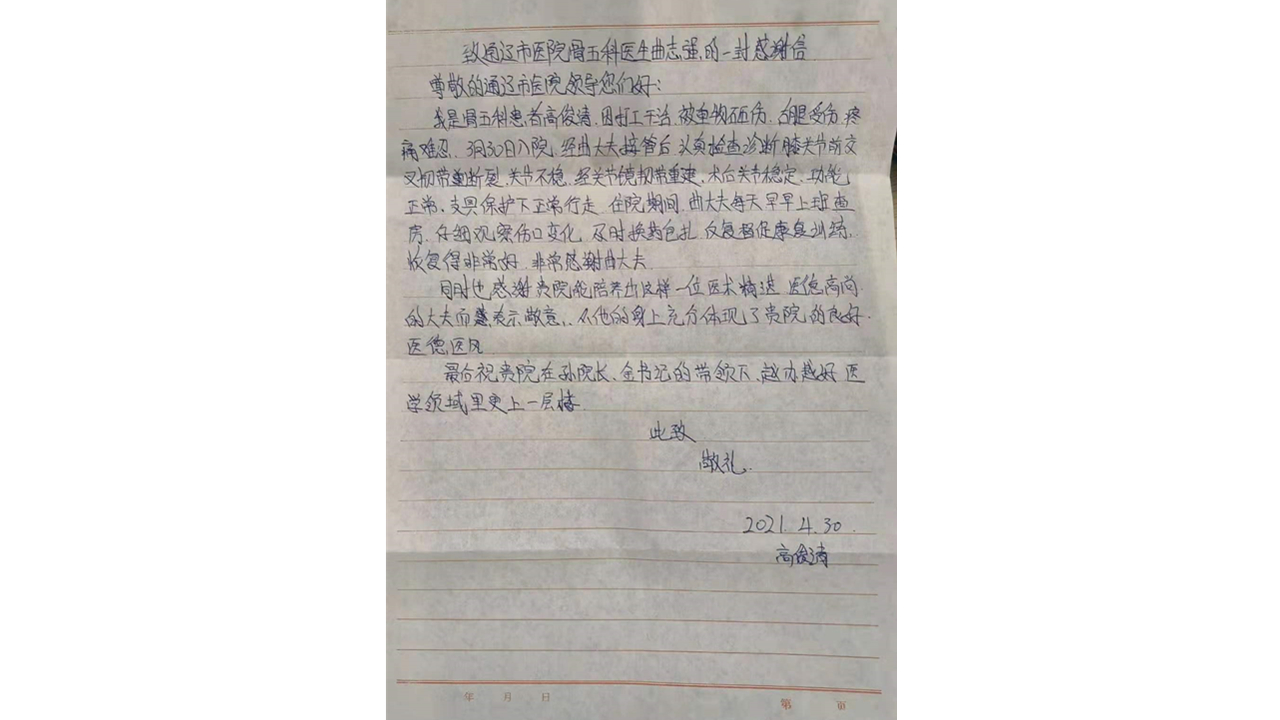 致通辽市医院骨五科医生曲志强的一封感谢信
尊敬的通辽市医院领导您们好:
我是骨五科患者高俊清.因打工干活.被重物砸伤.右腿受伤.疼
痛难忍.3月30日入院.经曲大夫接管后.认真检查诊断膝关节前交
叉韧带断裂.关节不稳.经关节镜韧带重建.术后关节稳定.功能
正常.支具保护下正常行走.住院期间.曲大夫每天早早上班查
房.仔细观察伤口变化.及时换药包扎.反复督促康复训练.
恢复得非常好.非常感谢曲大夫.
同时也感谢贵院能培养出这样一位医术精进 医德高尚
的大夫而表示敬意.从他的身上充分体现了贵院的良好.
医德医风
最后祝贵院在孙院长、金书记的带领下.越办越好 医
学领域里更上一层楼.
此致
敬礼.
2021.4.30.
高俊清
年 月 日
第 页